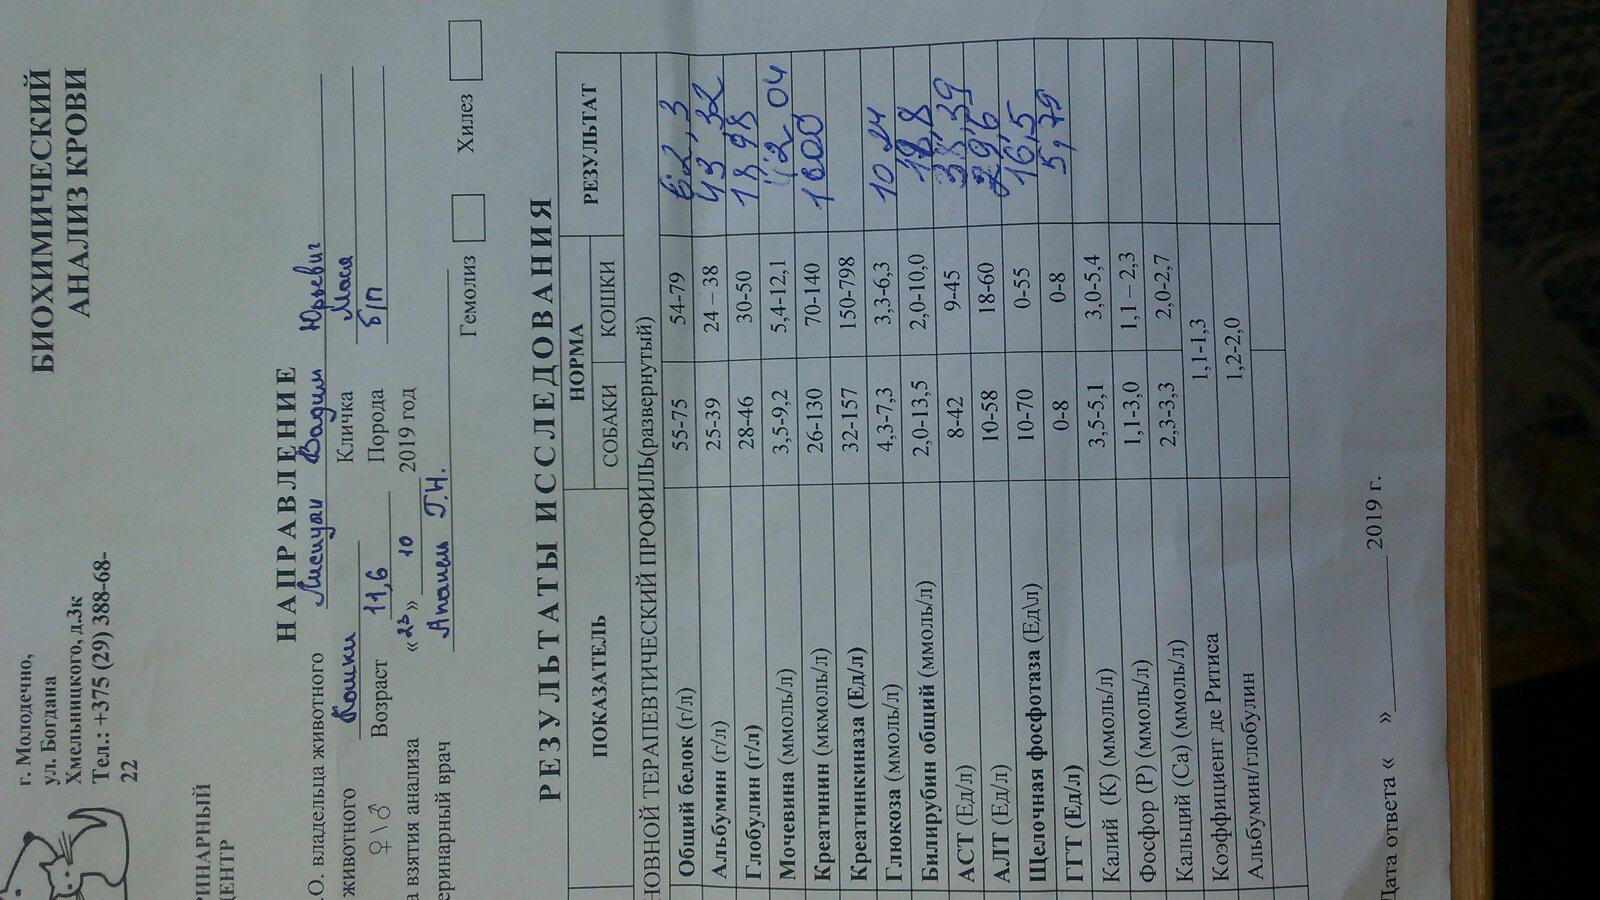 г. Молодечно,
ул. Богдана
Хмельницкого, д.3к
Тел.: +375 (29) 388-68-
22
БИОХИМИЧЕСКИЙ
АНАЛИЗ КРОВИ
РИНАРНЫЙ
ЦЕНТР
НАПРАВЛЕНИЕ
.О. владельца животного Лисицын Вадим Юрьевич
животного Кошки Кличка Мася
♀\♂ Возраст 11,6 Порода б/п
а взятия анализа «23» 10 2019 год
еринарный врач Апанель Г.Н.
Гемолиз Хилез
РЕЗУЛЬТАТЫ ИССЛЕДОВАНИЯ
ПОКАЗАТЕЛЬ НОРМА РЕЗУЛЬТАТ
СОБАКИ КОШКИ
НОВНОЙ ТЕРАПЕВТИЧЕСКИЙ ПРОФИЛЬ(развернутый)
Общий белок (г/л) 55-75 54-79 62,3
Альбумин (г/л) 25-39 24 – 38 43,32
Глобулин (г/л) 28-46 30-50 18,98
Мочевина (ммоль/л) 3,5-9,2 5,4-12,1
Креатинин (мкмоль/л) 26-130 70-140
Креатинкиназа (Ед/л) 32-157 150-798
Глюкоза (ммоль/л) 4,3-7,3 3,3-6,3 10,24
Билирубин общий (ммоль/л) 2,0-13,5 2,0-10,0 18,8
АСТ (Ед/л) 8-42 9-45
АЛТ (Ед/л) 10-58 18-60 29,6
Щелочная фосфотаза (Ед\л) 10-70 0-55 16,5
ГГТ (Ед/л) 0-8 0-8 5,79
Калий (К) (ммоль/л) 3,5-5,1 3,0-5,4
Фосфор (Р) (ммоль/л) 1,1-3,0 1,1 – 2,3
Кальций (Са) (ммоль/л) 2,3-3,3 2,0-2,7
Коэффициент де Ритиса 1,1-1,3
Альбумин/глобулин 1,2-2,0
Дата ответа « » 2019 г.